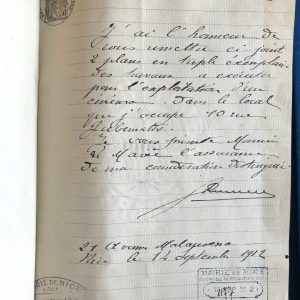 J'ai l'honneur de
vous remettre ci joint
2 plans en triple exemplaire
des travaux a exécuter
pour l'exploitation d'un
cinema. dans le local
que j'occupe 10 rue
Gubernatis.
Je vous prie Monsieur
le Maire l'assurance
de ma considération distinguée
21 Avenue Malausséna
Nice le 14 Septembre 1912
MAIRIE DE NICE
MAIRIE DE NICE